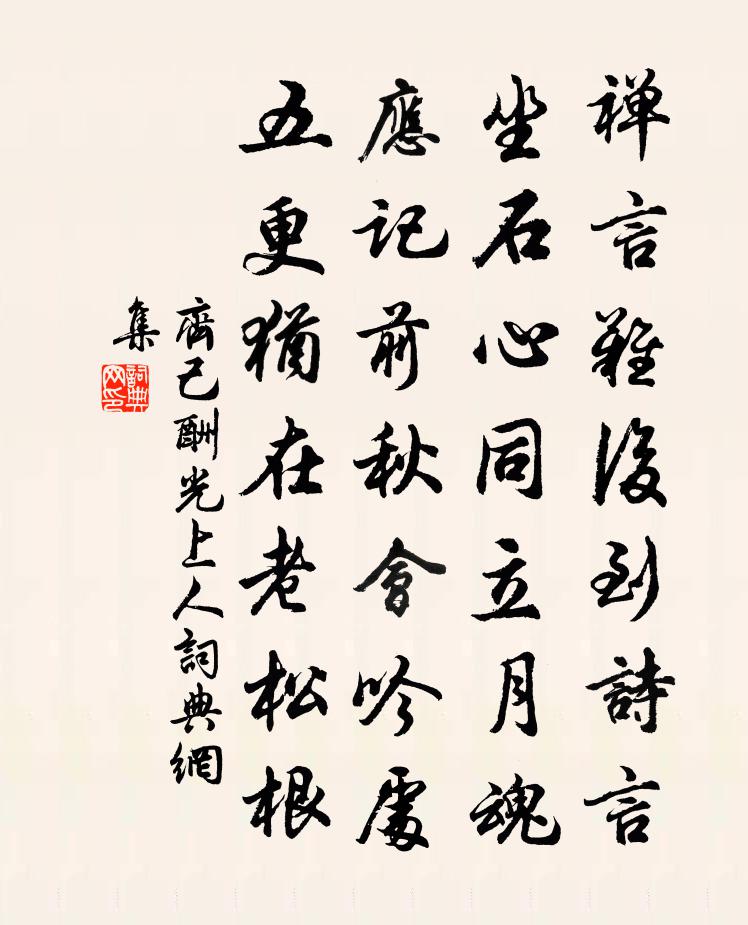 禅言難後到詩言
坐石心同立月魂
應記前秋會吟處
五更猶在老松根
齊己酬光上人詞典網
集
詞典
网印